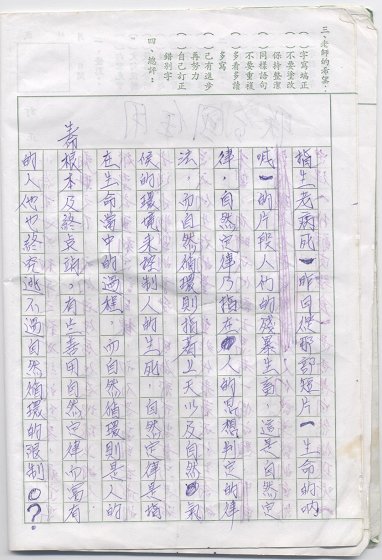 三、老師的希望：
( )字寫端正
( )不要塗改
保持整潔
( )同樣語句
不要重複
( )多看多讀
多寫
( )已有進步
再努力
( )自己訂正
錯別字
四、總評：
指生老病死—昨日使 部短片—生命的吶
喊—的片段人 的殘暴生 ，這是自然定
律，自然定律乃指在 人的思想判定的律
法，而自然循環則指著上天以及自然 氣
候的環境來控制人的生死，自然定律是指
在生命當中的過程，而自然循環則是人的
根本乃終衰竭，有些善用自然定律而富有
的人他也終究逃不過自然循環的限制 ？